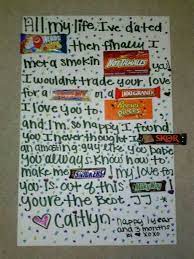 All my life, I've dated
then finally I
met a smokin HOT TAMALES
I wouldnt trade your love
for a or a 100 GRAND
I love you to Reese's PIECES
and I'm so happy I found
you I never thought I SKOR
an amazing guy like you babe
you always know how to
make me SNICKERS my love for
you. Is out of this MilkyWay
you're the Best J.J
♡ Caitlyn. Happy 1 year
and 3 months
xoxo